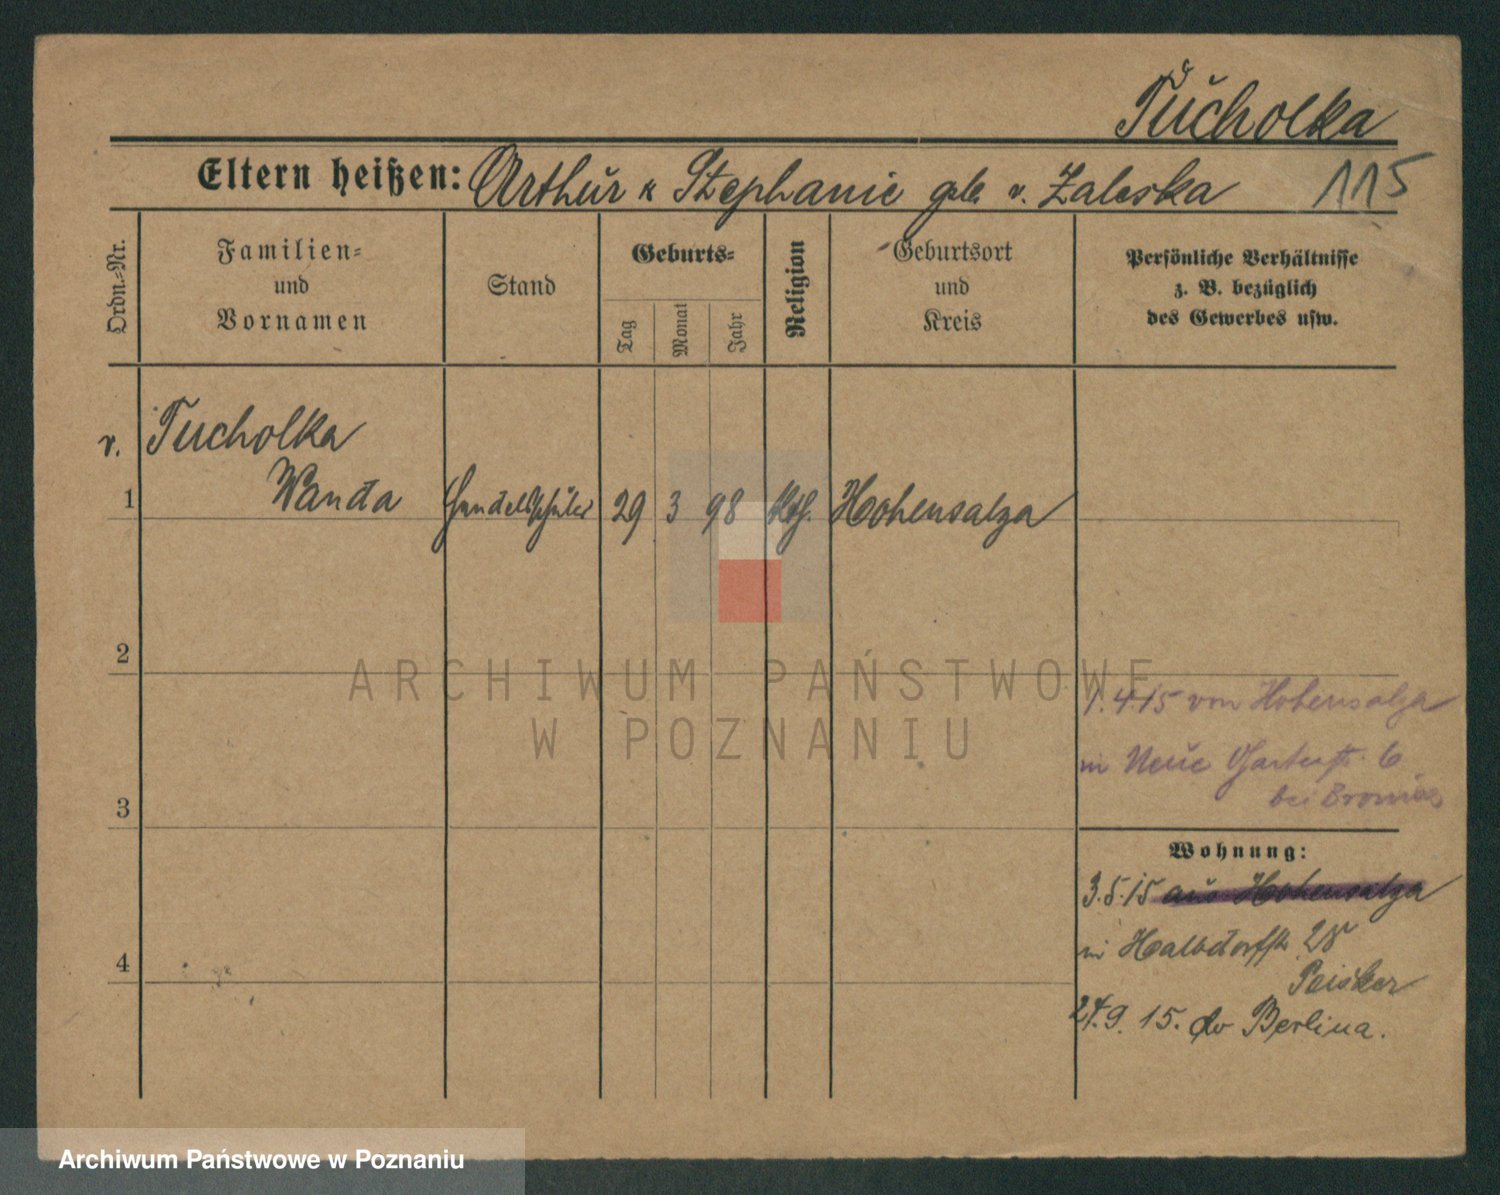 v. Tucholka
Eltern heißen: Arthur & Stephanie geb. v. Zaleska 115
Ordn.-Nr.
Familien- und Vornamen
Stand
Geburts-
Tag
Monat
Jahr
Religion
Geburtsort und Kreis
Persönliche Verhältnisse z. B. bezüglich des Gewerbes usw.
v. Tucholka
1 Wanda Handelsschüler 29 3 98 kth. Hohensalza
2
1.4.15 von Hohensalza
in Neue Gartenstr. 6
bei
3
Wohnung:
3.5.15 aus Hohensalza
in Halbdorfstr. 28
4
Peisker
24.9.15. do Berlina.
ARCHIWUM PAŃSTWOWE
W POZNANIU
Archiwum Państwowe w Poznaniu